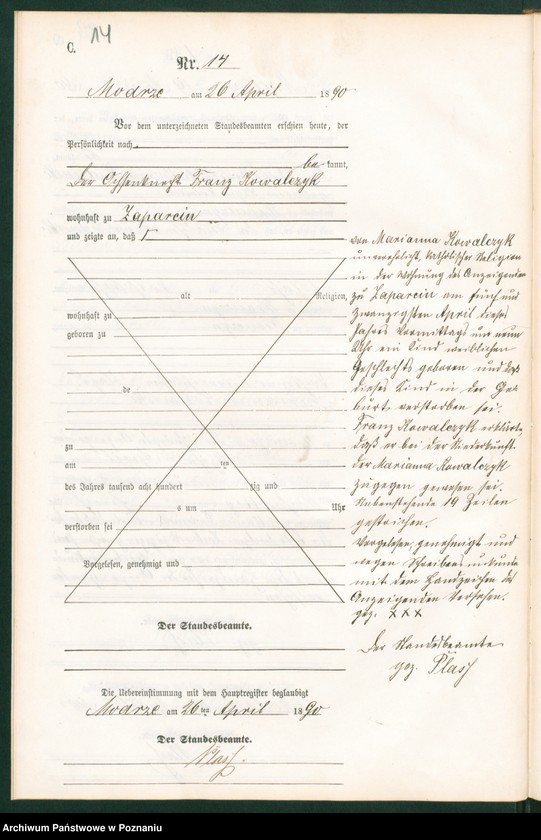 C.
14
Nr. 14
Modrze am 26 April 1890
Vor dem unterzeichneten Standesbeamten erschien heute, der
Persönlichkeit nach
be kannt,
Der Ochsenknecht Franz Kowalczyk
wohnhaft zu Zaparcin
und zeigte an, daß
alt Religion,
wohnhaft zu
geboren zu
de
zu
am ten
des Jahres tausend acht hundert zig und
s um Uhr
verstorben sei
Vorgelesen, genehmigt und
Der Standesbeamte.
von Marianna Kowalczyk
unverehelicht, katholischer Religion
in der Wohnung des Anzeigenden
zu Zaparcin am fünf und
zwanzigsten April dieses
Jahres Vormittags um neun
Uhr ein Kind weiblichen
Geschlechts geboren und daß
dieses Kind in der Ge-
burt verstorben sei.
Franz Kowalczyk erklärte,
daß er bei der Niederkunft
der Marianna Kowalczyk
zugegen gewesen sei.
Nebenstehende 19 Zeilen
gestrichen.
Vorgelesen, genehmigt und
wegen Schreibensunkunde
mit dem Handzeichen des
Anzeigenden versehen.
gez. xxx
Der Standesbeamte
gez.
Die Uebereinstimmung mit dem Hauptregister beglaubigt
Modrze am 26ten April 1890
Der Standesbeamte.
Archiwum Państwowe w Poznaniu